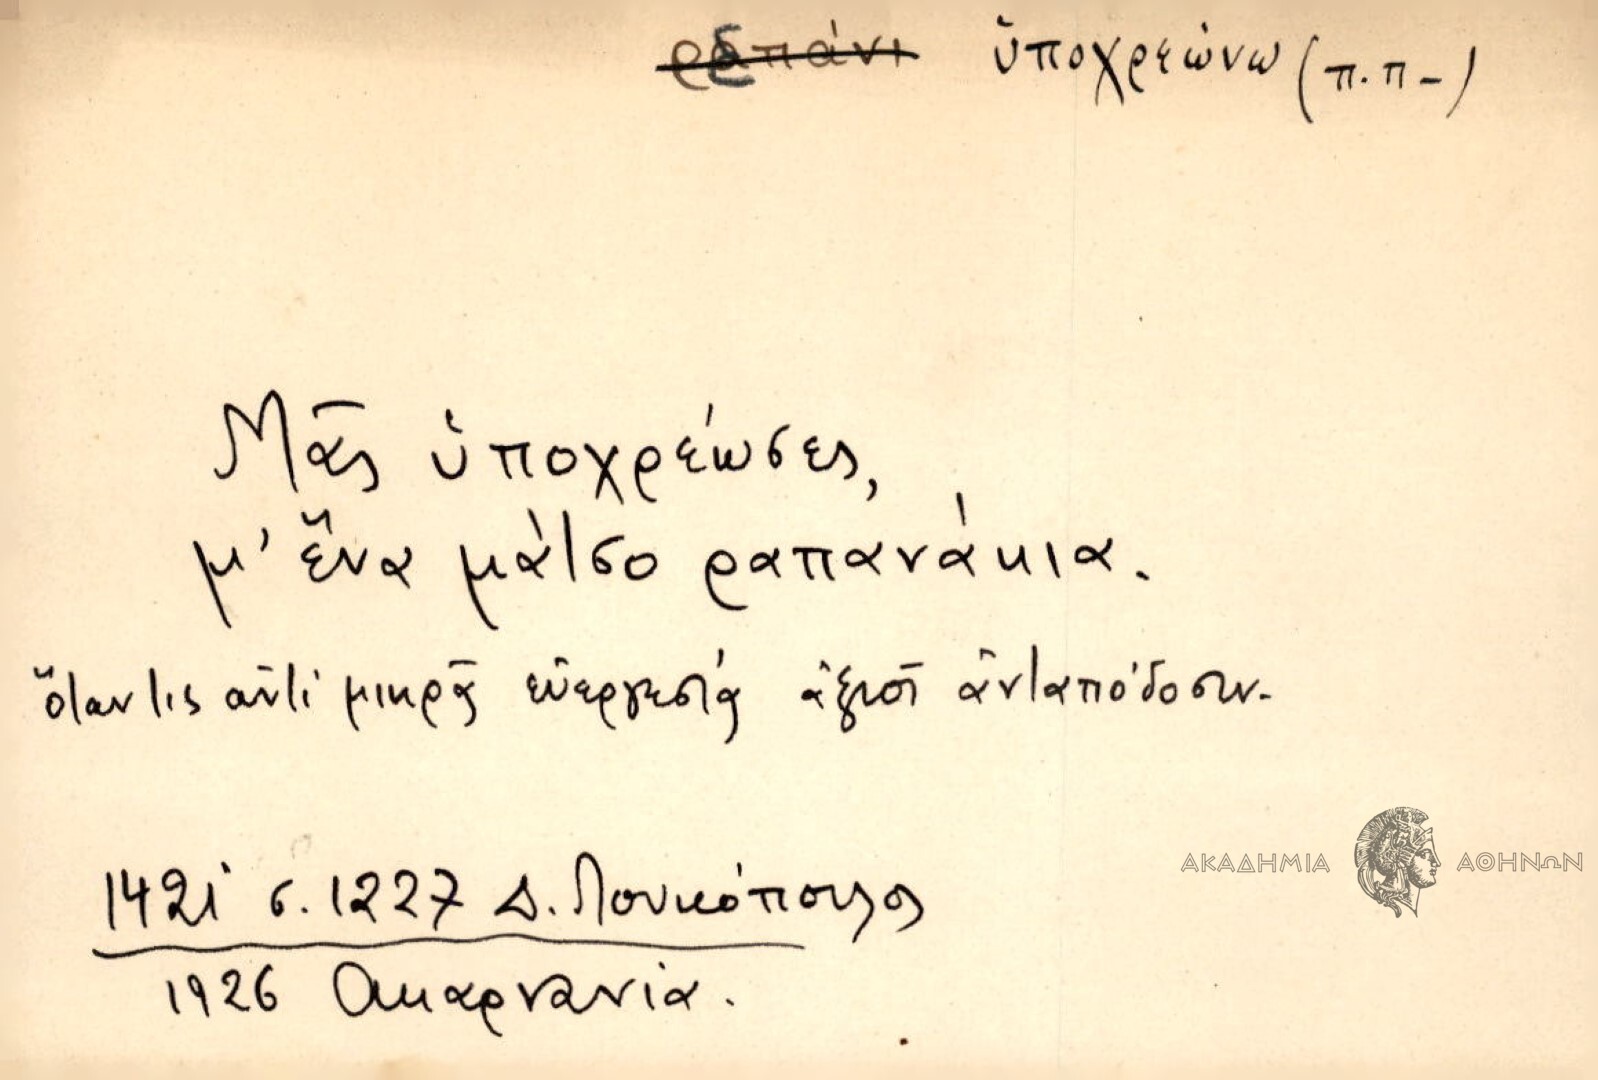 ραπάνι ὑποχρεώνω (π.π-)
Μᾶς ὑποχρέωσες,
μ' ἕνα μάτσο ραπανάκια.
ὅταν τις ἀντὶ μικρᾶς εὐεργεσίας ἀξιοῖ ἀνταπόδοσιν.
ΑΚΑΔΗΜΙΑ ΑΘΗΝΩΝ
1421 σ. 1227 Δ. Λουκόπουλος
1926 Ακαρνανία.